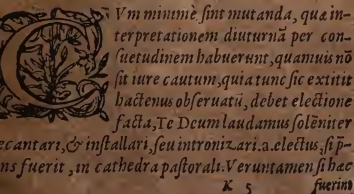 CVm minimè sint mutanda, quæ in-
terpretationem diuturnã per con-
suetudinem habuerunt, quamuis nõ
sit iure cautum, quia tunc sic extitit
hactenus obseruatũ, debet electione
facta, Te Deum laudamus solẽniter
ecantari, & installari, seu intronizari.a.electus, si p̃-
ns fuerit, in cathedra pastorali. Veruntamen si hæc
K 5 fuerint